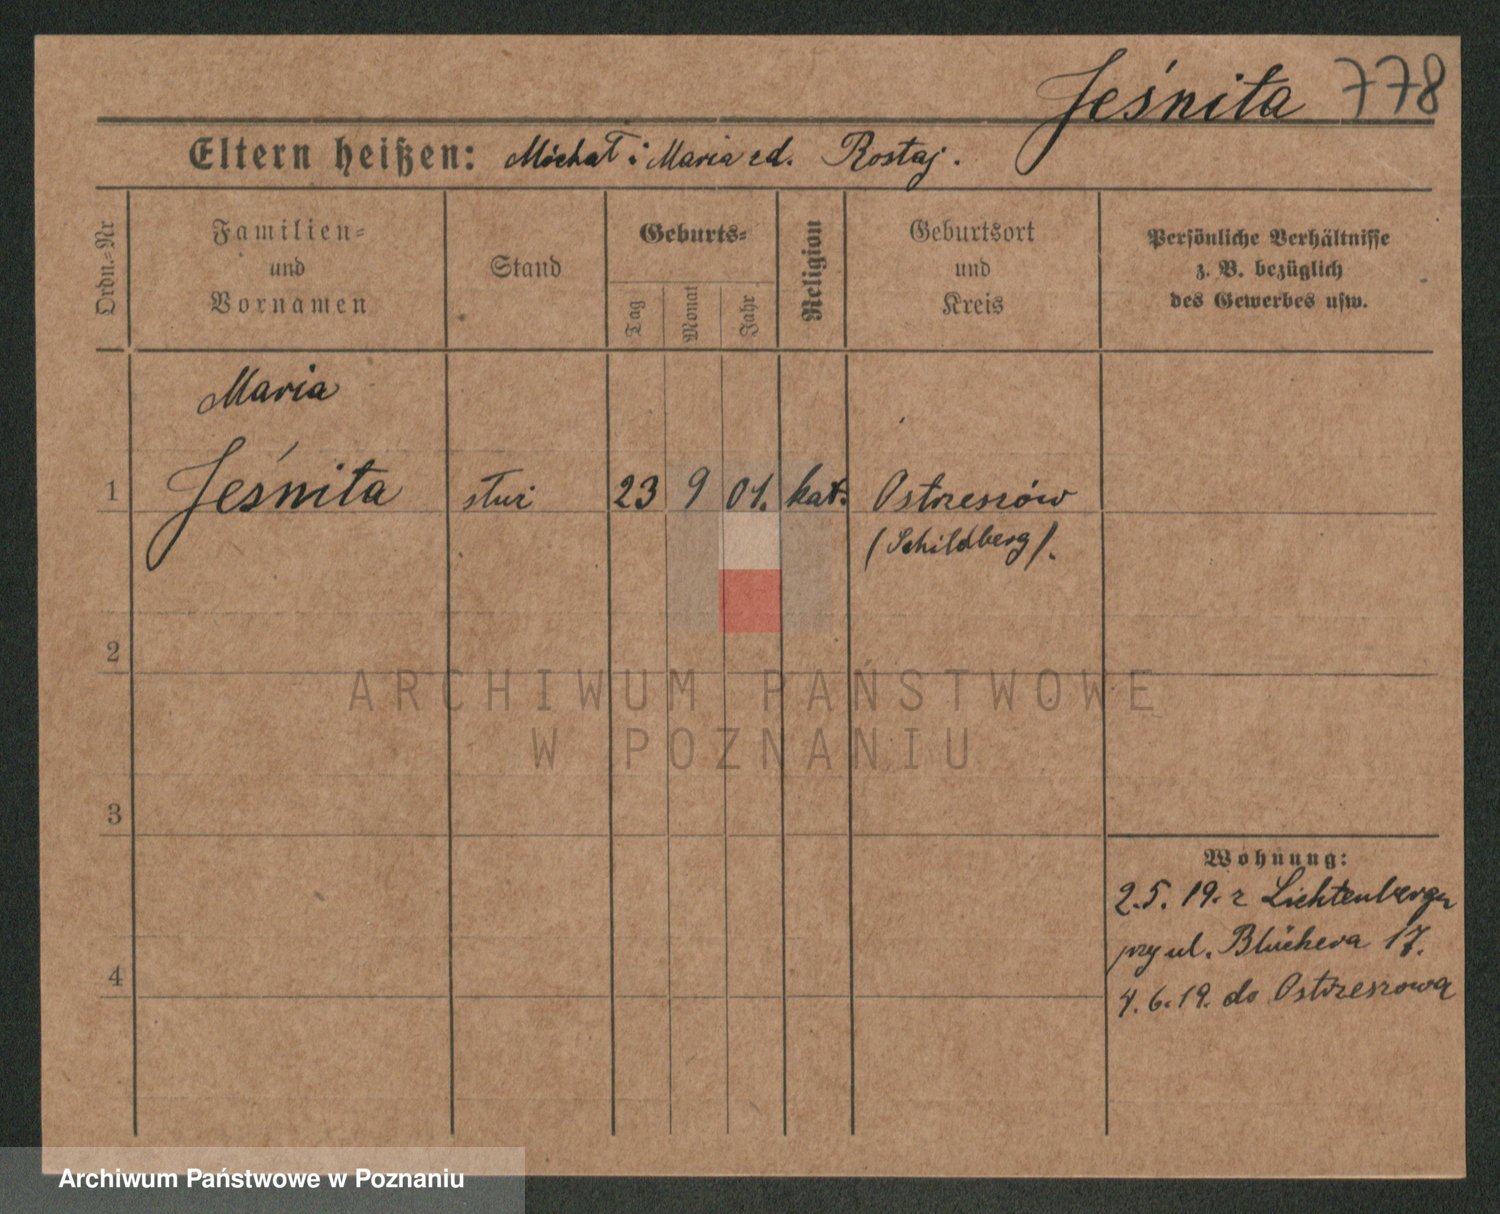 Jeśnita 778
Eltern heißen: Michał i Maria zd. Rostaj.
Ordn.-Nr
Familien-
und
Vornamen
Stand
Geburts-
Tag
Monat
Jahr
Religion
Geburtsort
und
Kreis
Persönliche Verhältnisse
z. B. bezüglich
des Gewerbes usw.
Maria
1 Jeśnita 23 9 01. kat. Ostrzeszów
(Schildberg).
2
3
4
Wohnung:
2.5.19. z Lichtenberga
przy ul. Blüchera 17.
4.6.19. do Ostrzeszowa
ARCHIWUM PAŃSTWOWE
W POZNANIU
Archiwum Państwowe w Poznaniu